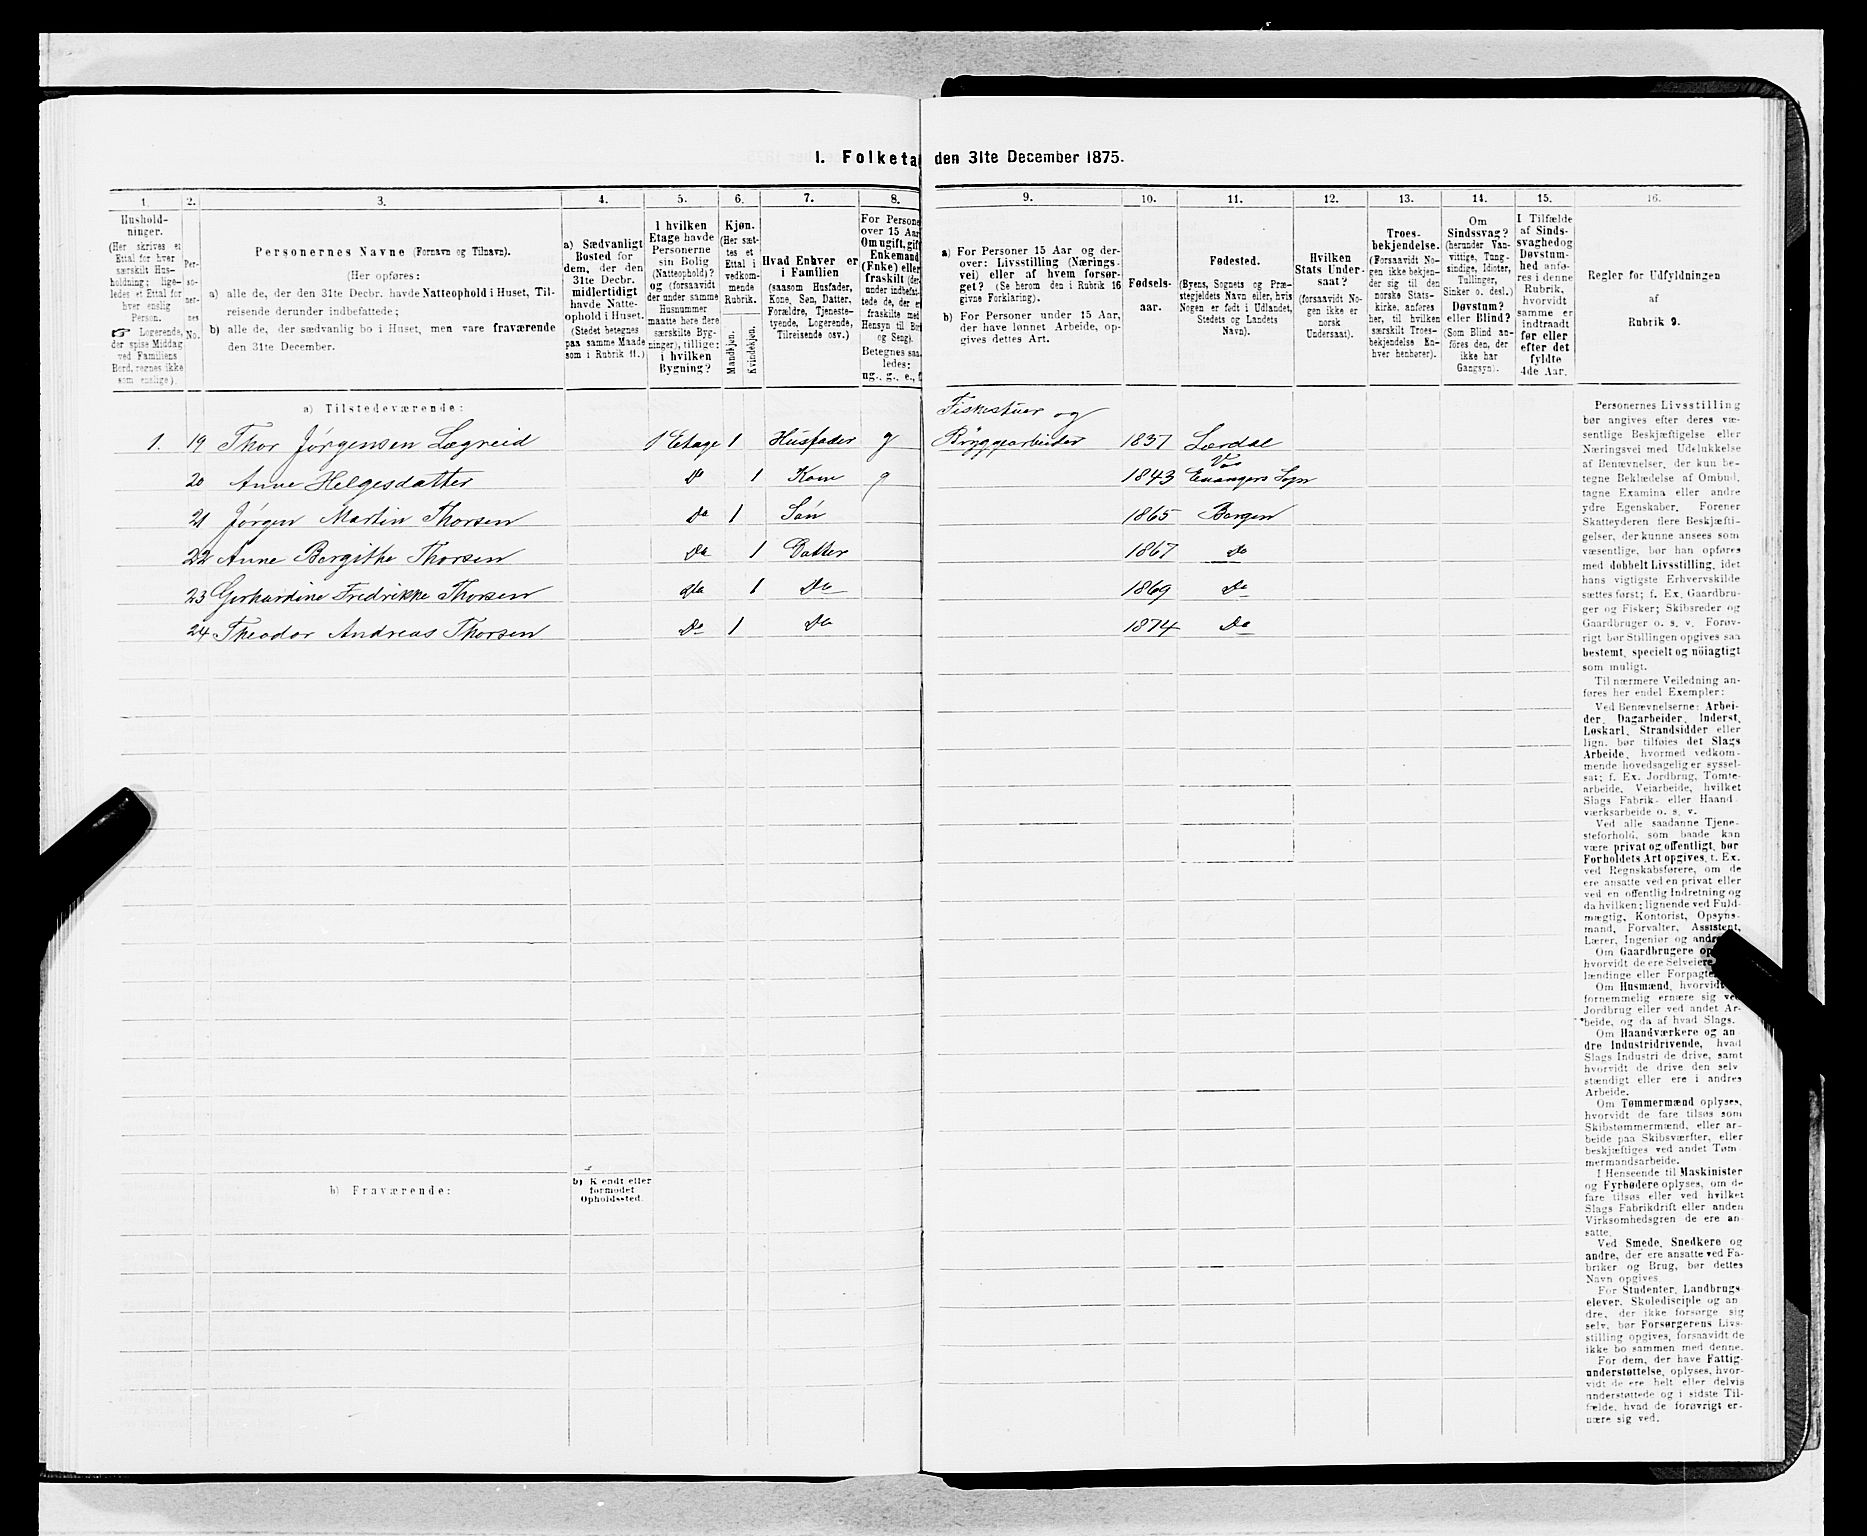 1. Folketa den 31te December 1875.
1. 2. 3. 4. 5. 6. 7. 8. 9. 10. 11. 12. 13. 14. 15. 16.
Hushold-
ninger.
(Her skrives et
Ettal for hver
særskilt Hus-
holdning; lige-
ledes et Ettal for
hver enslig
Person.
☞ Logerende,
der spise Middag
ved Familiens
Bord, regnes ikke
som enslige).
Per-
so-
ner-
nes
No.
Personernes Navne (Fornavn og Tilnavn).
(Her opføres:
a) alle de, der den 31te Decbr. havde Natteophold i Huset, Til-
reisende derunder indbefattede;
b) alle de, der sædvanlig bo i Huset, men vare fraværende
den 31te December.
a) Sædvanligt
Bosted for
dem, der den
31te Decbr.
midlertidigt
havde Natte-
ophold i Huset.
(Stedet betegnes
paa samme Maade
som i Rubrik 11.)
I hvilken
Etage havde
Personerne
sin Bolig
(Natteophold)?
og (forsaavidt
der under samme
Husnummer
maatte høre flere
særskilte Byg-
ninger), tillige:
i hvilken
Bygning?
Kjøn.
(Her sæt-
tes et
Ettal i
vedkom-
mende
Rubrik.
Mandkjøn.
Kvindekjøn.
Hvad Enhver er
i Familien
(saasom Husfader,
Kone, Søn, Datter,
Forældre, Tjeneste-
tyende, Logerende,
Tilreisende osv.)
For Persone
over 15 Aar
Om ugift, gift
Enkemand
(Enke) eller
fraskilt (der
under indbefat-
tede de, der er
fraskilte med
Hensyn til Bor
og Seng).
Betegnes saa
ledes:
ug., g., e., f
a) For Personer 15 Aar og der-
over: Livsstilling (Nærings-
vei) eller af hvem forsør-
get? (Se herom den i Rubrik 16
givne Forklaring).
b) For Personer under 15 Aar,
der have lønnet Arbeide, op-
gives dettes Art.
Fødsels-
aar.
Fødested.
(Byens, Sognets og Præ-
stegjeldets Navn eller, hvis
Nogen er født i Udlandet,
Stedets og Landets
Navn).
Hvilken
Stats Under-
saat?
(forsaavidt No-
gen ikke er
norsk
Undersaat).
Troes-
bekjendelse.
(Forsaavidt No-
gen ikke bekjen-
der sig til den
norske Stats-
kirke, anføres
her, til hvilken
særskilt Troes-
bekjendelse En-
hver henhører).
Om
Sindssvag?
(herunder Van-
vittige, Tung-
sindige, Idioter,
Tullinger,
Sinker o. desl.).
Døvstum?
eller Blind?
(Som Blind an-
føres den, der
ikke har
Gangsyn).
I Tilfælde
af Sinds-
svaghed og
Døvstum-
hed anfø-
res i denne
Rubrik,
hvorvidt
samme er
indtraadt
før eller
efter det
fyldte
4de Aar.
Regler for Udfyldningen
af
Rubrik 9.
a) Tilstedeværende:
Fiskestuer og
1. 19 Thor Jørgensen Lægreid 1 Etage 1 Husfader g Bryggearbeider 1837 Lærdal
Vos
20 Anne Helgesdatter Do 1 Kone g 1843 Evangers Sogn
21 Jørgen Martin Thorsen Do 1 Søn 1865 Bergen
22 Anne Bergithe Thorsen Do 1 Datter 1867 Do
23 Gerhardine Fredrikke Thorsen Do 1 Do 1869 Do
24 Theodor Andreas Thorsen Do 1 Do 1874 Do
b) Fraværende:
b) Kjendt eller
formodet
Opholdssted.
Personernes Livsstilling
bør angives efter deres væ-
sentlige Beskjæftigelse eller
Næringsvei med Udelukkelse
af Benævnelser, der kun be-
tegne Beklædelse af Ombud,
tagne Examina eller andre
ydre Egenskaber. Forener
Skatteyderen flere Beskjæfti-
gelser, der kunne ansees som
væsentlige, bør han opføres
med dobbelt Livsstilling, idet
hans vigtigste Erhvervskilde
sættes først; f. Ex. Gaardbru-
ger og Fisker; Skibsreder og
Gaardbruger o. s. v. Forøv-
rigt bør Stillingen opgives saa
bestemt, specielt og nöiagtigt
som muligt.
Til nærmere Veiledning an-
føres her endel Exempler:
Ved Benævnelserne: Arbei-
der, Dagarbeider, Inderst,
Løskarl, Strandsidder eller
lign. bør tilføies det Slags
Arbeide, hvormed vedkom-
mende hovedsagelig er syssel-
sat; f. Ex. Jordbrug, Tomte-
arbeide, Veiarbeide, hvilket
Slags Fabrik- eller Haand-
værksarbeide o. s. v.
Ved alle saadanne Tjene-
steforhold, som baade kan
være privat og offentligt, bør
Forholdets Art opgives, f. Ex.
ved Regnskabsførere, om de
ere ansatte ved en privat eller
ved en offentlig Indretning og
da hvilken; lignende ved Fuld-
mægtig, Kontorist, Opsyns-
mand, Forvalter, Assistent,
Lærer, Ingeniør og andre
Om Gaardbrugere op
hvorvidt de ere Selveiere,
lændinge eller Forpagte
Om Husmænd, hvorvidt
fornemmelig ernære sig ved
Jordbrug eller ved andet Ar-
beide, og da af hvad Slags.
Om Haandværkere og an-
dre Industridrivende, hvad
Slags Industri de drive, samt
hvorvidt de drive den selv-
stændigt eller ere i andres
Arbeide.
Om Tømmermænd oplyses,
hvorvidt de fare tilsøs som
Skibstømmermænd, eller ar-
beide paa Skibsværfter, eller
beskjæftiges ved andet Tøm-
mermandsarbeide.
I Henseende til Maskinister
og Fyrbødere oplyses, om de
fare tilsøs eller ved hvilket
Slags Fabrikdrift eller anden
Virksomhedsgren de ere an-
satte.
Ved Smede, Snedkere og
andre, der ere ansatte ved Fa-
briker og Brug, bør dettes
Navn opgives.
For Studenter, Landbrugs-
elever, Skoledisciple og an-
dre, der ikke forsørge sig
selv, bør Forsørgerens Livs-
stilling opgives, forsaavidt de
ikke bo sammen med denne.
For dem, der have Fattig-
understøttelse, oplyses, hvor-
vidt de ere helt eller delvis
understøttede og i sidste Til-
fælde, hvad de forøvrigt er-
nære sig ved.